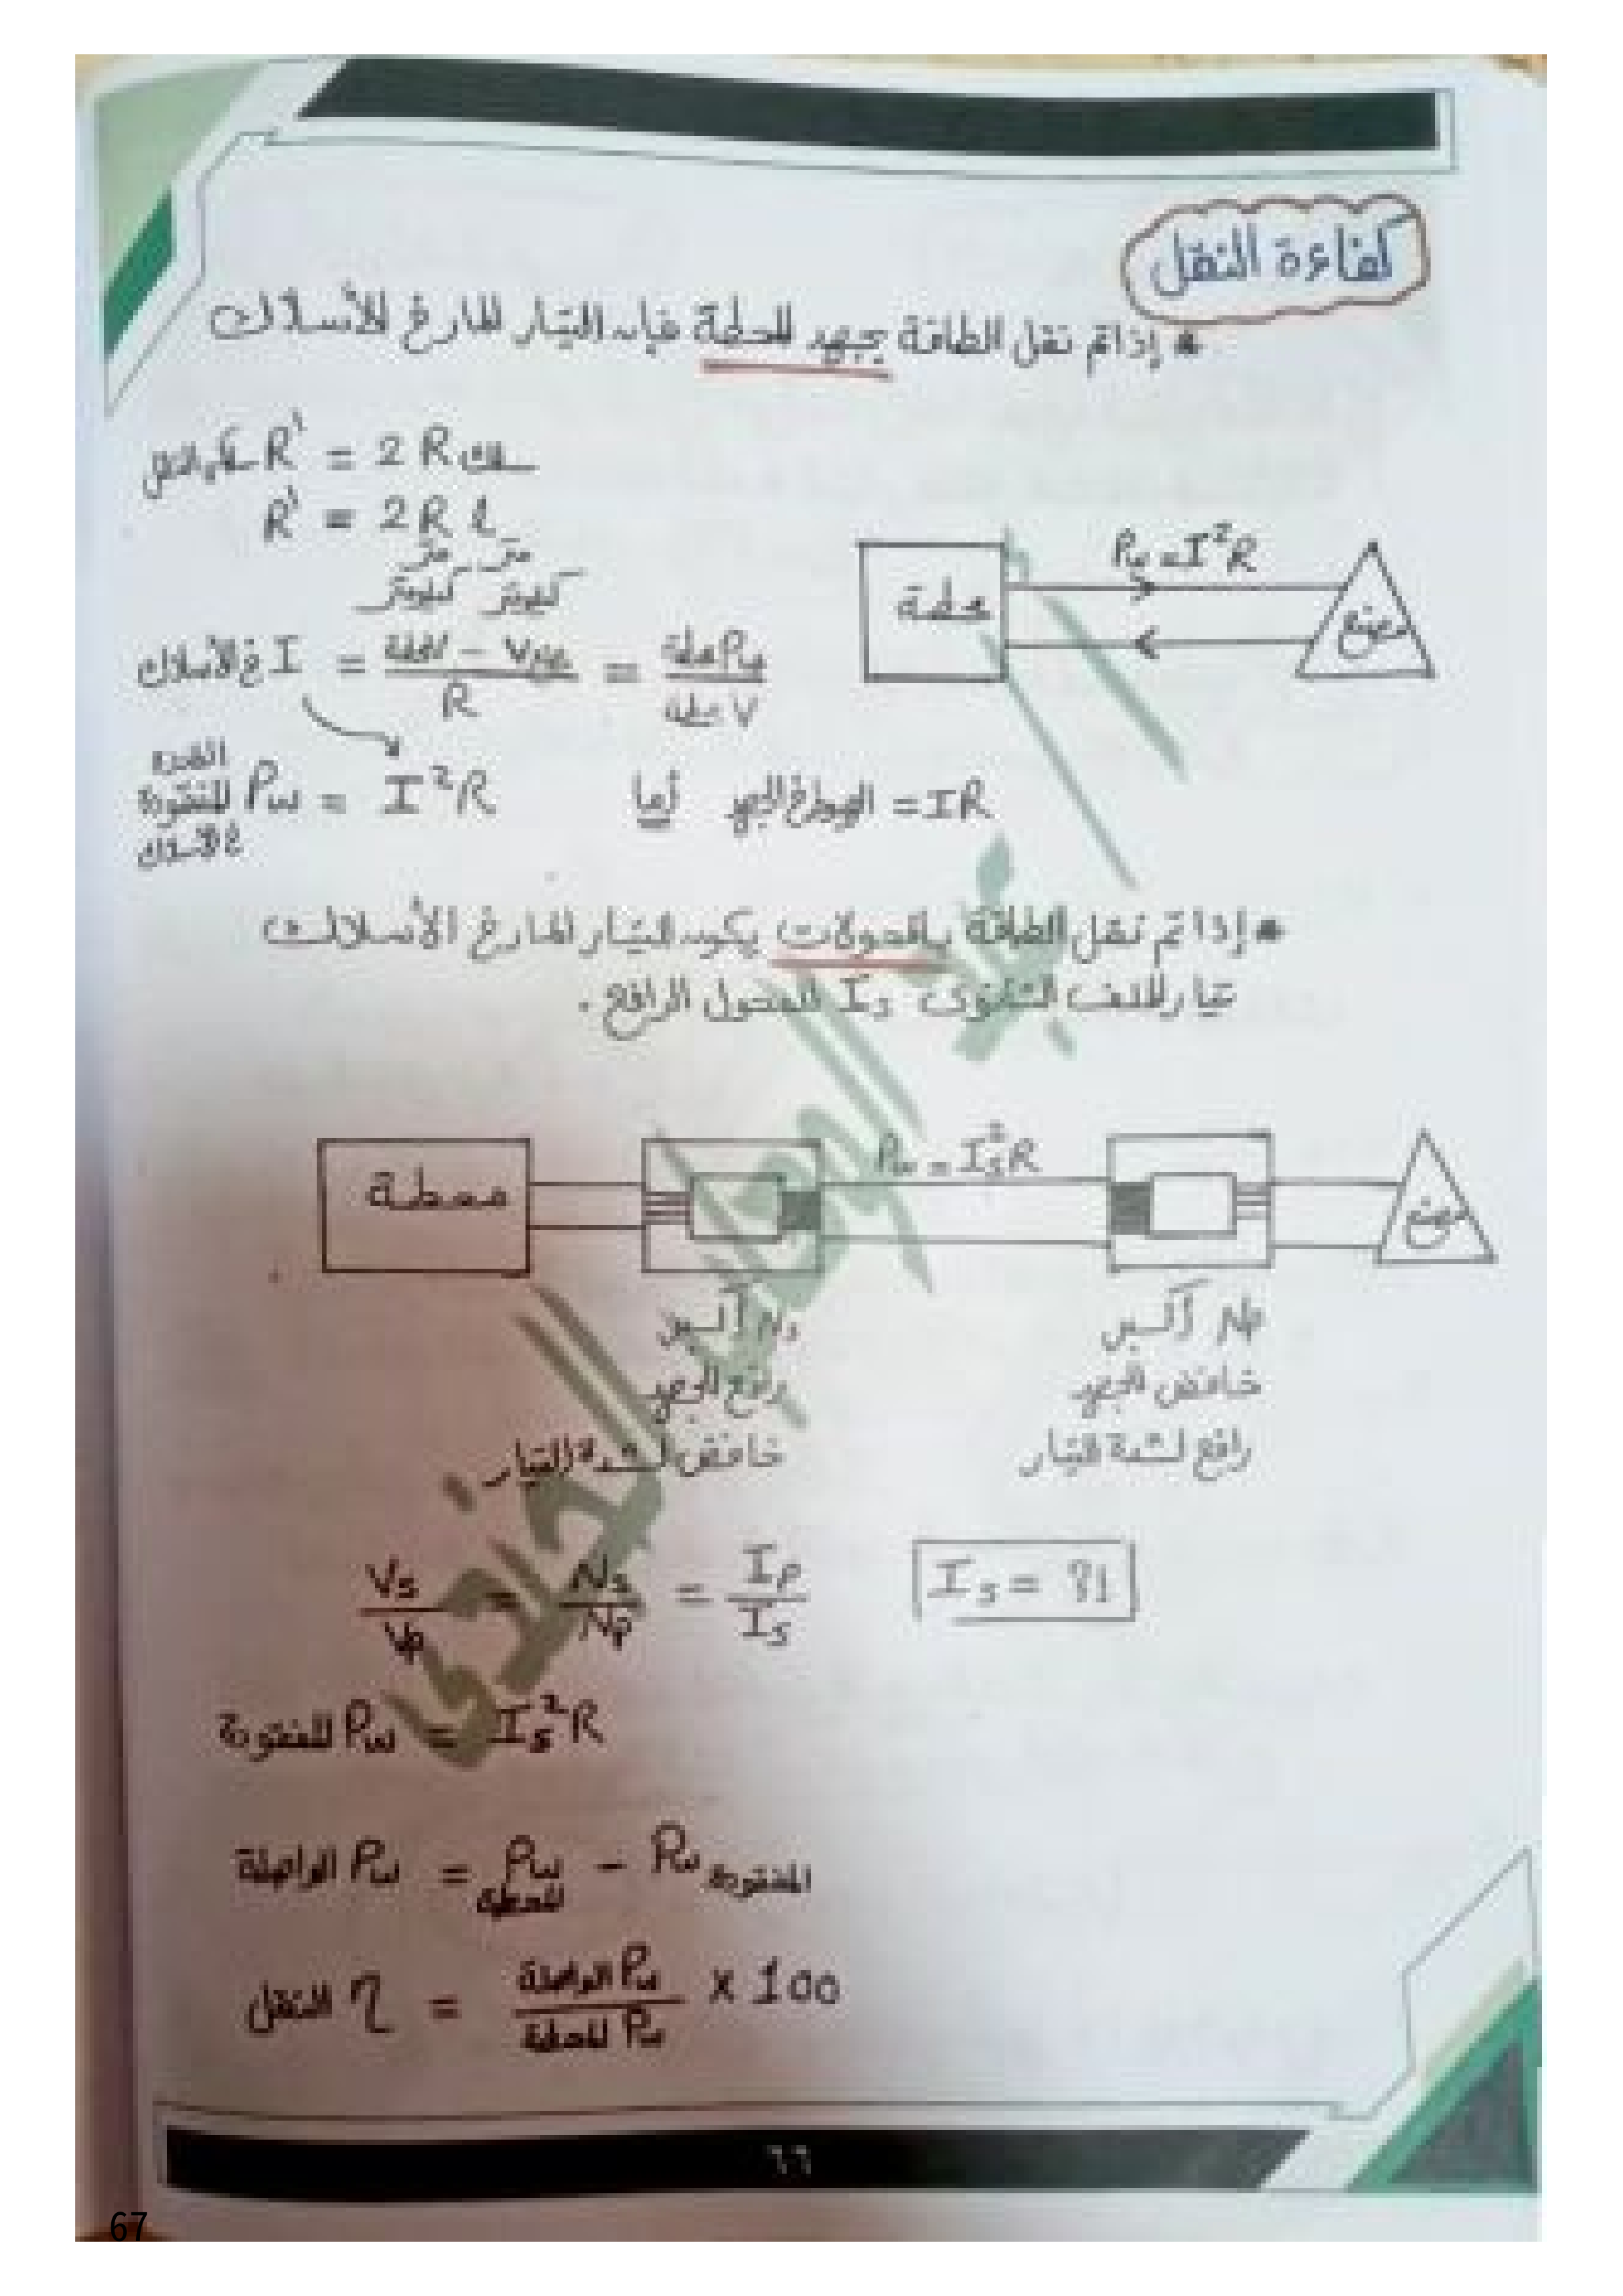 كفاءة النقل
* إذا تم نقل الطاقة بجهد المحطة فإن التيار المار في الأسلاك
R' = 2 R سلك
R' = 2 R l
متر متر
كيلومتر كيلومتر
Pw = I²R
محطة
مصنع
I في الأسلاك = المحطة - V مصنع / R = Pw محطة / V محطة
القدرة المفقودة في الأسلاك Pw = I²R
أيضا الهبوط في الجهد = IR
* إذا تم نقل الطاقة بالمحولات يكون التيار المار في الأسلاك
تيار الملف الثانوى Is للمحول الرافع .
محطة
Pw = Is²R
مصنع
Ns أكبر
رافع للجهد
خافض لشدة التيار
Np أكبر
خافض للجهد
رافع لشدة التيار
Vs / Vp = Ns / Np = Ip / Is
Is = ??
المفقودة Pw = Is²R
الواصلة Pw = Pw المحطة - Pw المفقودة
النقل η = الواصلة Pw / المحطة Pw x 100
٦٦
67